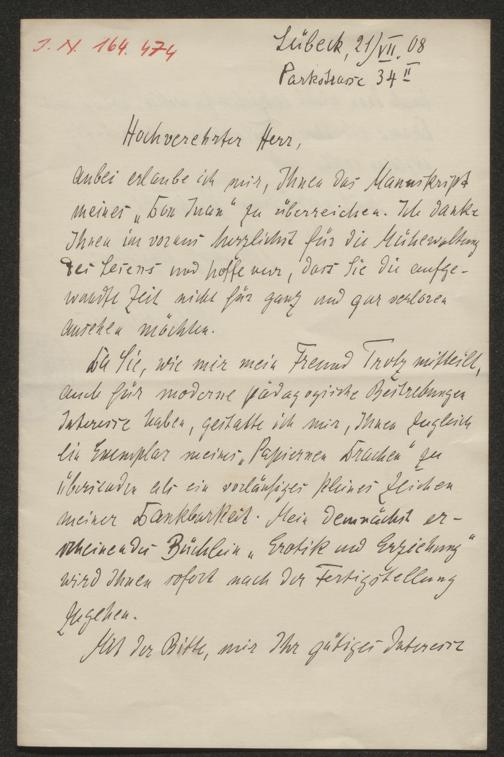 J. N. 164.474
Lübeck, 21/VII. 08
Parkstrasse 34 II
Hochverehrter Herr,
anbei erlaube ich mir, Ihnen das Manuskript
meines „Don Juan“ zu überreichen. Ich danke
Ihnen im voraus herzlichst für die Mühewaltung
des Lesens und hoffe nur, dass Sie die aufge-
wandte Zeit nicht für ganz und gar verloren
ansehen möchten.
Da Sie, wie mir mein Freund Trotz mitteilt,
auch für moderne pädagogische Bestrebungen
Interesse haben, gestatte ich mir, Ihnen zugleich
ein Exemplar meines „Papiernen Drachen“ zu
übersenden als ein vorläufiges kleines Zeichen
meiner Dankbarkeit. Mein demnächst er-
scheinendes Büchlein „Erotik und Erziehung“
wird Ihnen sofort nach der Fertigstellung
zugehen.
Mit der Bitte, mir Ihr gütiges Interesse